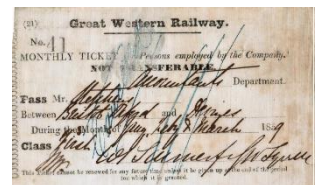 (21) Great Western Railway.
No. 41
MONTHLY TICKET for Persons employed by the Company.
NOT TRANSFERABLE.
Accountants Department.
Pass Mr.
Between and
During the Months of Jany, Feby & March 1859
Class First
This Ticket cannot be renewed for any future time unless it be given up at the end of the period
for which it is granted.